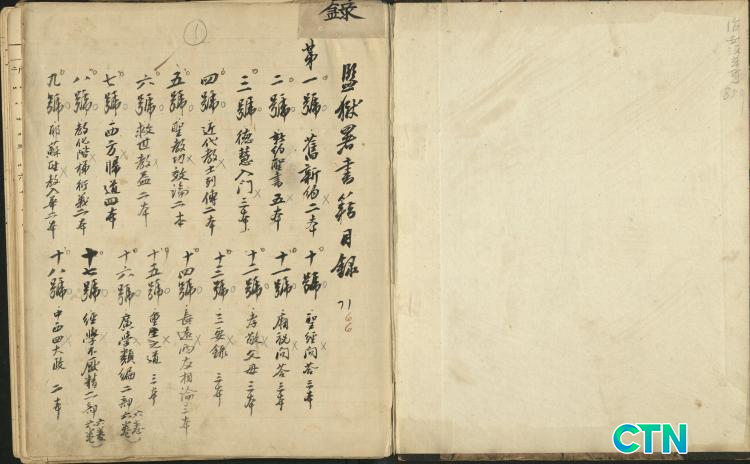 錄
監獄署書籍目錄
7166
第一號 舊新約二本
二號 新約聖書五本
三號 德慧入门三本
四號 近代教士列傳二本
五號 聖教功效論二本
六號 救世教益二本
七號 西方歸道四本
八號 教化階梯衍義二本
九號 耶蘇聖教入華二本
十號 聖經问答三本
十一號 廟祝问答三本
十二號 孝敬父母三本
十三號 三要錄 三本
十四號 長遠两友相論三本
十五號 重生之道 三本
十六號 廣学類编二部 (六卷)
十七號 經學不厭精二部 (六卷)
十八號 中西四大政 二本
1
CTN